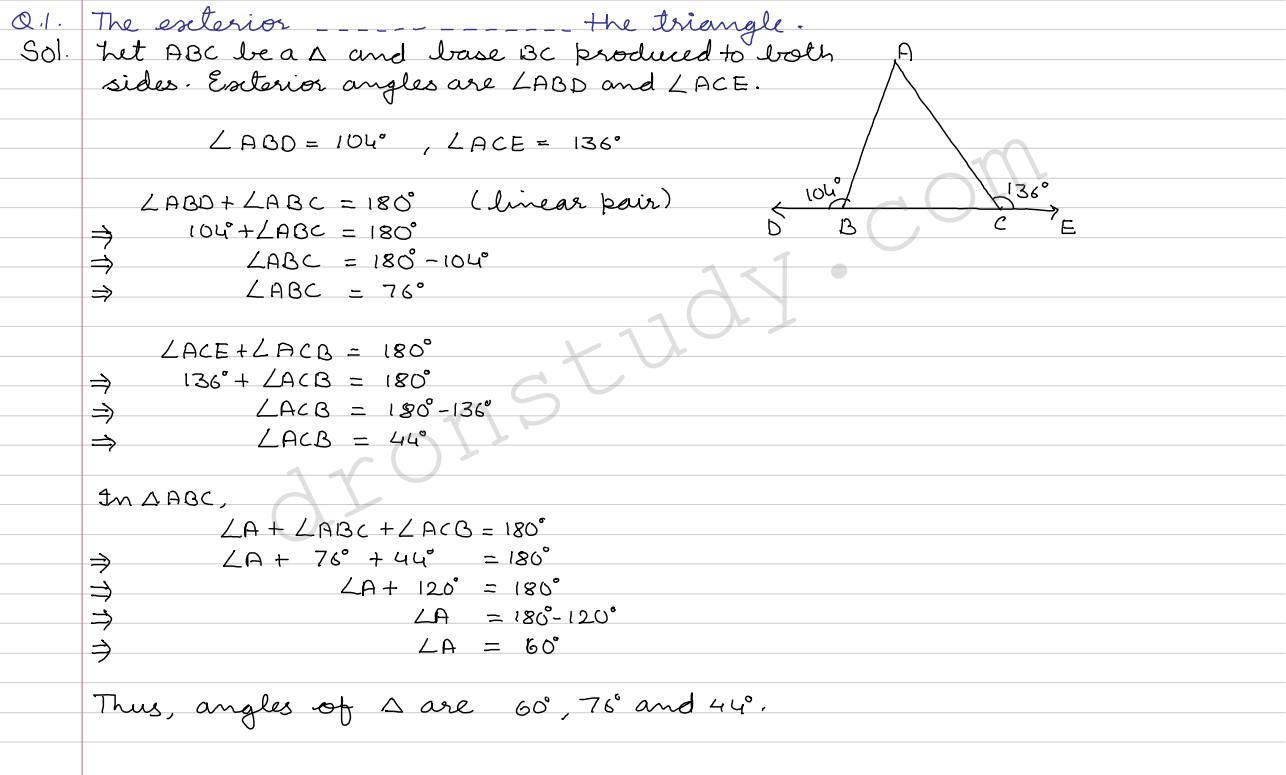 Q.1. The exterior ------ ------- the triangle.
Sol. Let ABC be a Δ and base BC produced to both
sides. Exterior angles are ∠ABD and ∠ACE.
∠ABD = 104° , ∠ACE = 136°
∠ABD + ∠ABC = 180° (linear pair)
⇒ 104° + ∠ABC = 180°
⇒ ∠ABC = 180° - 104°
⇒ ∠ABC = 76°
∠ACE + ∠ACB = 180°
⇒ 136° + ∠ACB = 180°
⇒ ∠ACB = 180° - 136°
⇒ ∠ACB = 44°
In ΔABC,
∠A + ∠ABC + ∠ACB = 180°
⇒ ∠A + 76° + 44° = 180°
⇒ ∠A + 120° = 180°
⇒ ∠A = 180° - 120°
⇒ ∠A = 60°
Thus, angles of Δ are 60°, 76° and 44°.
A
104° 136°
D B C E
dronstudy.com